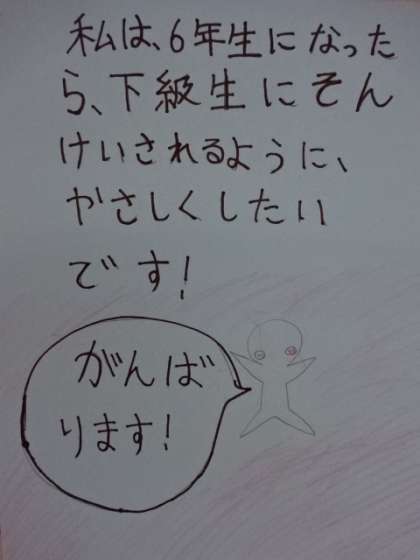 私は、6年生になった
ら、下級生にそん
けいされるように、
やさしくしたい
です!
がんば
ります!